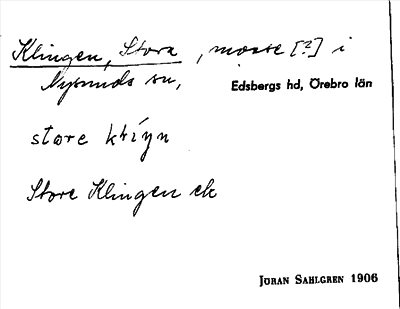 Klingen, Stora, mosse [?] i
Nysunds sn,
Edsbergs hd, Örebro län
store
Store Klingen ek
JÖRAN SAHLGREN 1906